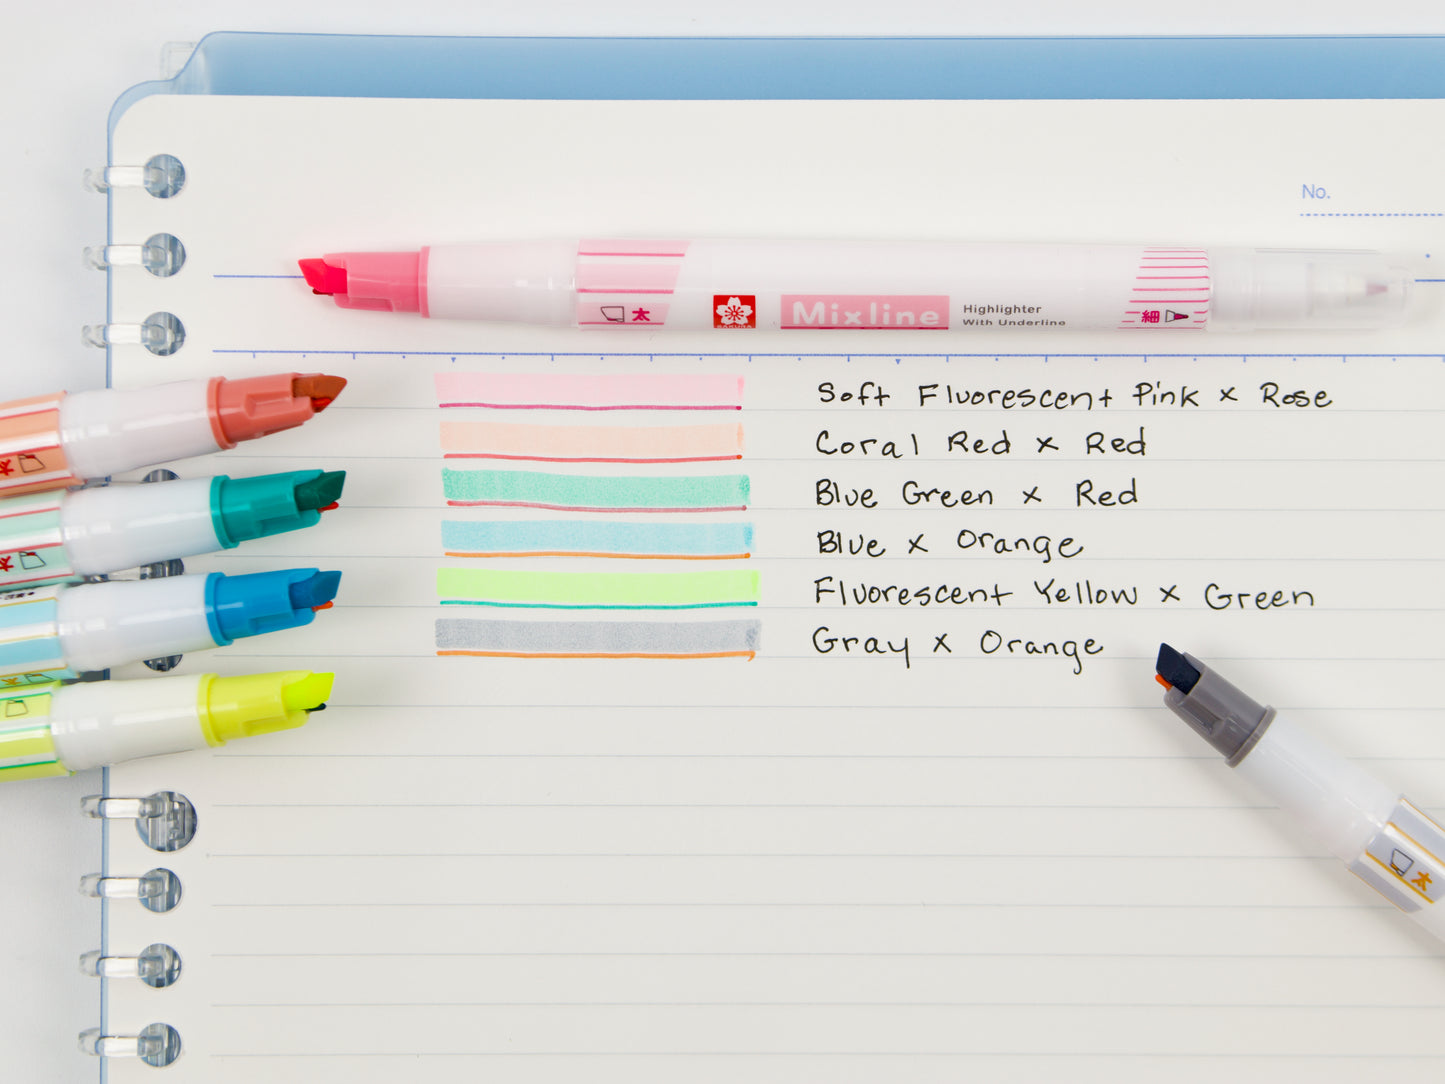 No.
太
SAKURA
Mixline
Highlighter
With Underline
細
Soft Fluorescent Pink x Rose
Coral Red x Red
Blue Green x Red
Blue x Orange
Fluorescent Yellow x Green
Gray x Orange
太